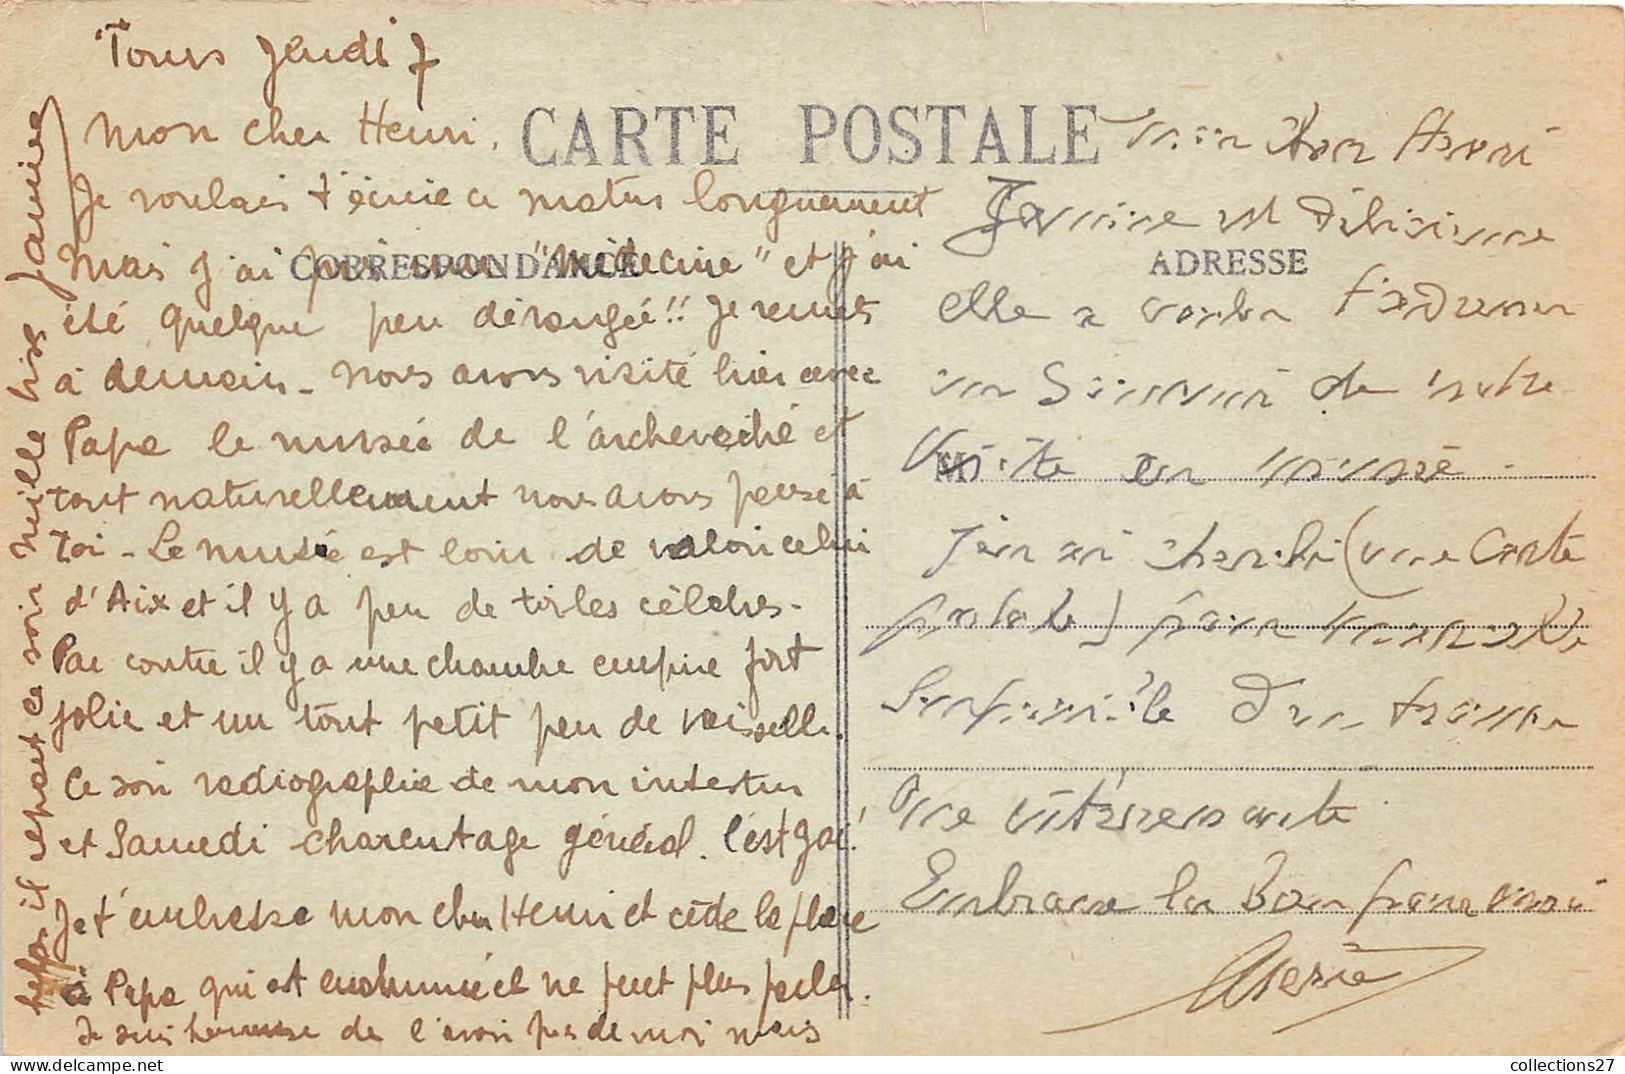 Tours Jeudi 7
Mon cher Henri,
Je voulais t'écrire ce matin longuement
Mais j'ai pris une "médecine" et j'ai
été quelque peu dérangée!! Je remets
à demain - Nous avons visité hier avec
Papa le musée de l'archeveché et
tout naturellement nous avons pensé à
toi - Le musée est loin de valoir celui
d'Aix et il y a peu de toiles célèbres -
Par contre il y a une chambre empire fort
jolie et un tout petit peu de vaisselle.
Ce soir radiographie de mon intestin
et Samedi charcutage général. C'est gai!
Je t'embrasse mon cher Henri et cède la place
à Papa qui est enrhumé et ne peut plus parler.
Je suis heureuse de l'avoir près de moi mais
il repart ce soir Mille bises Janine
CARTE POSTALE
CORRESPONDANCE
ADRESSE
M
Mon cher Henri
Janine est
elle a voulu
un Souvenir de notre
Visite au musée.
J'en ai cherché (une Carte
postale) pour
d'un
Embrasse les
collections27